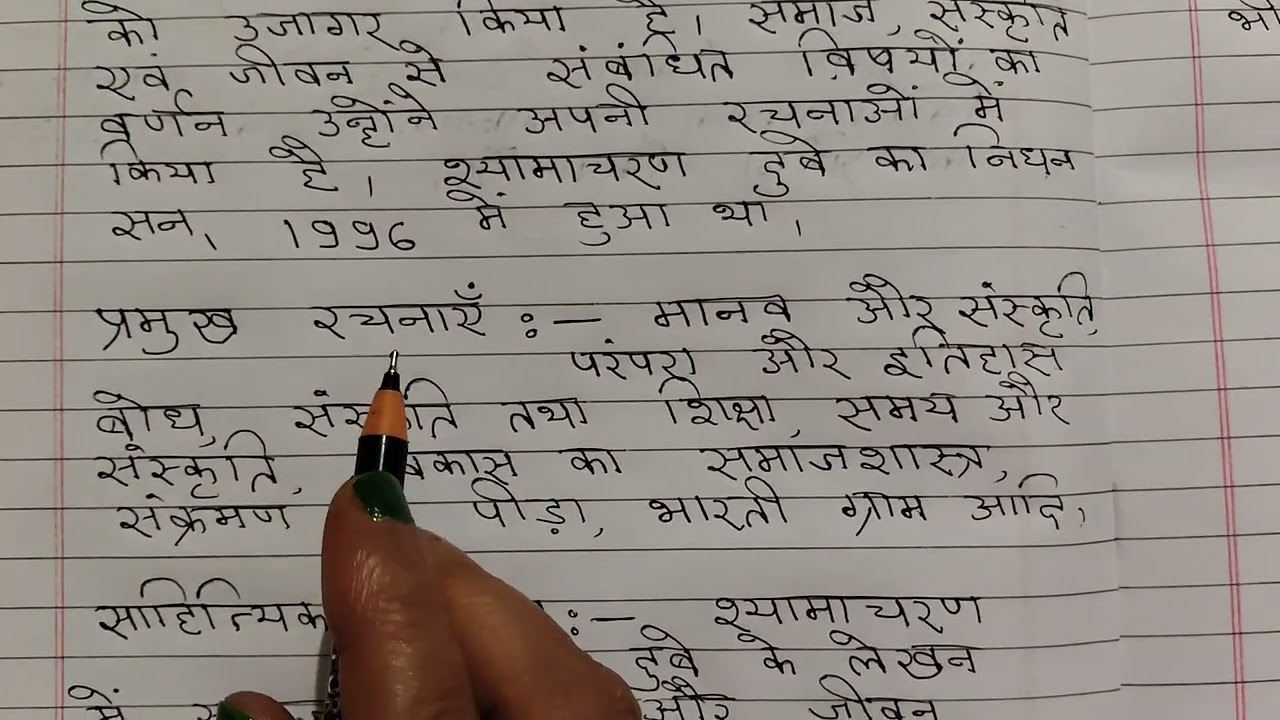 को उजागर किया है। समाज, संस्कृति
एवं जीवन से संबंधित विषयों का
वर्णन उन्होंने अपनी रचनाओं में
किया है। श्यामाचरण दुबे का निधन
सन, 1996 में हुआ था।
प्रमुख रचनाएँ :- मानव और संस्कृति,
परंपरा और इतिहास
बोध, संस्कृति तथा शिक्षा, समय और
संस्कृति, का समाजशास्त्र,
संक्रमण पीड़ा, भारती ग्राम आदि,
साहित्यिक :- श्यामाचरण
दुबे के लेखन
में और जीवन